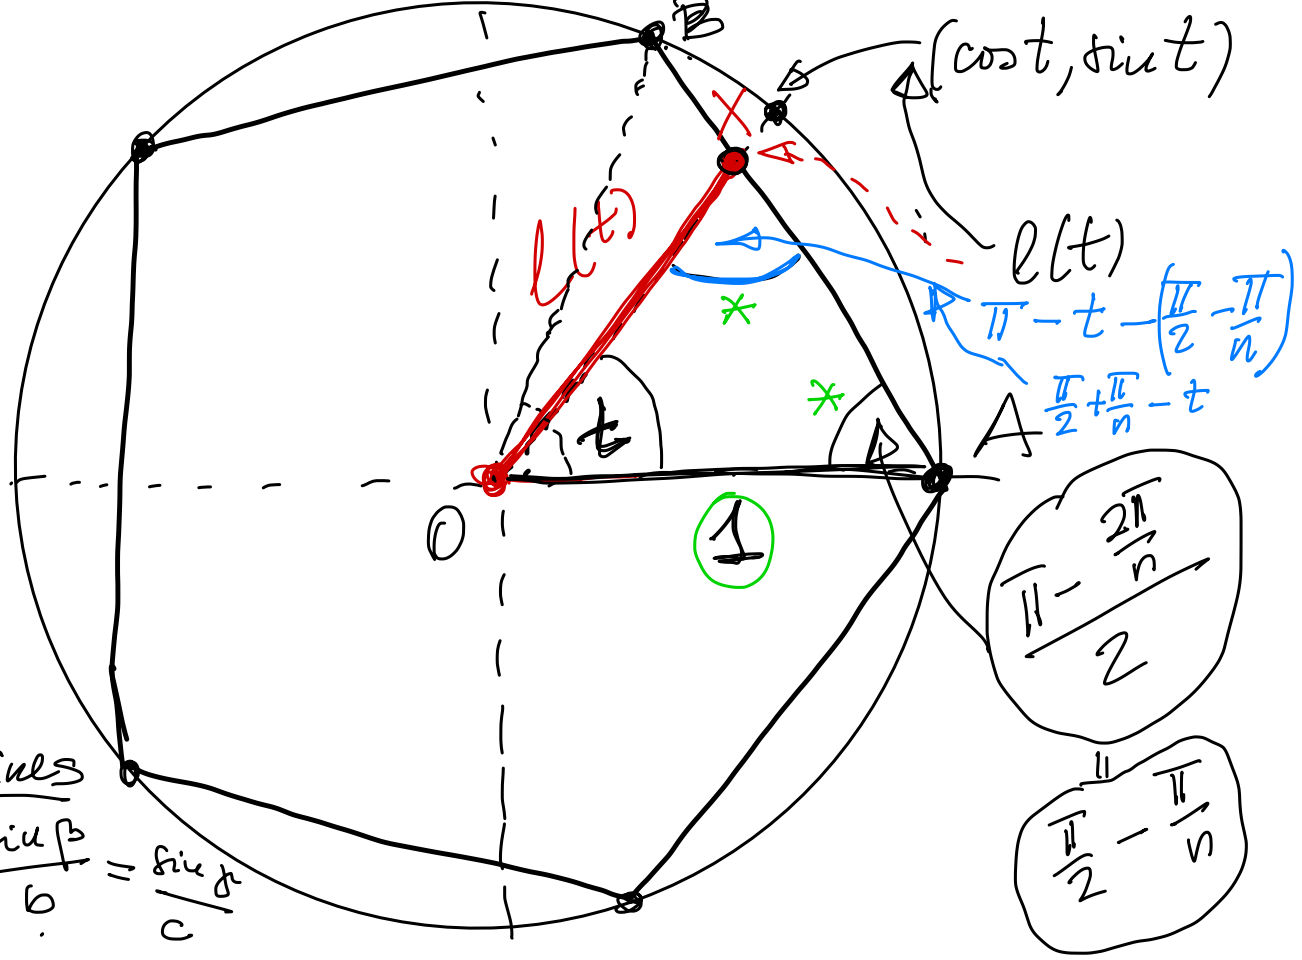 B
(cos t, sin t)
X
l(t)
l(t)
π - t - (π/2 - π/n)
*
*
π/2 + π/n - t
t
A
O
1
(π - 2π/n)/2
=
π/2 - π/n
ines
in β/b = sin γ/c